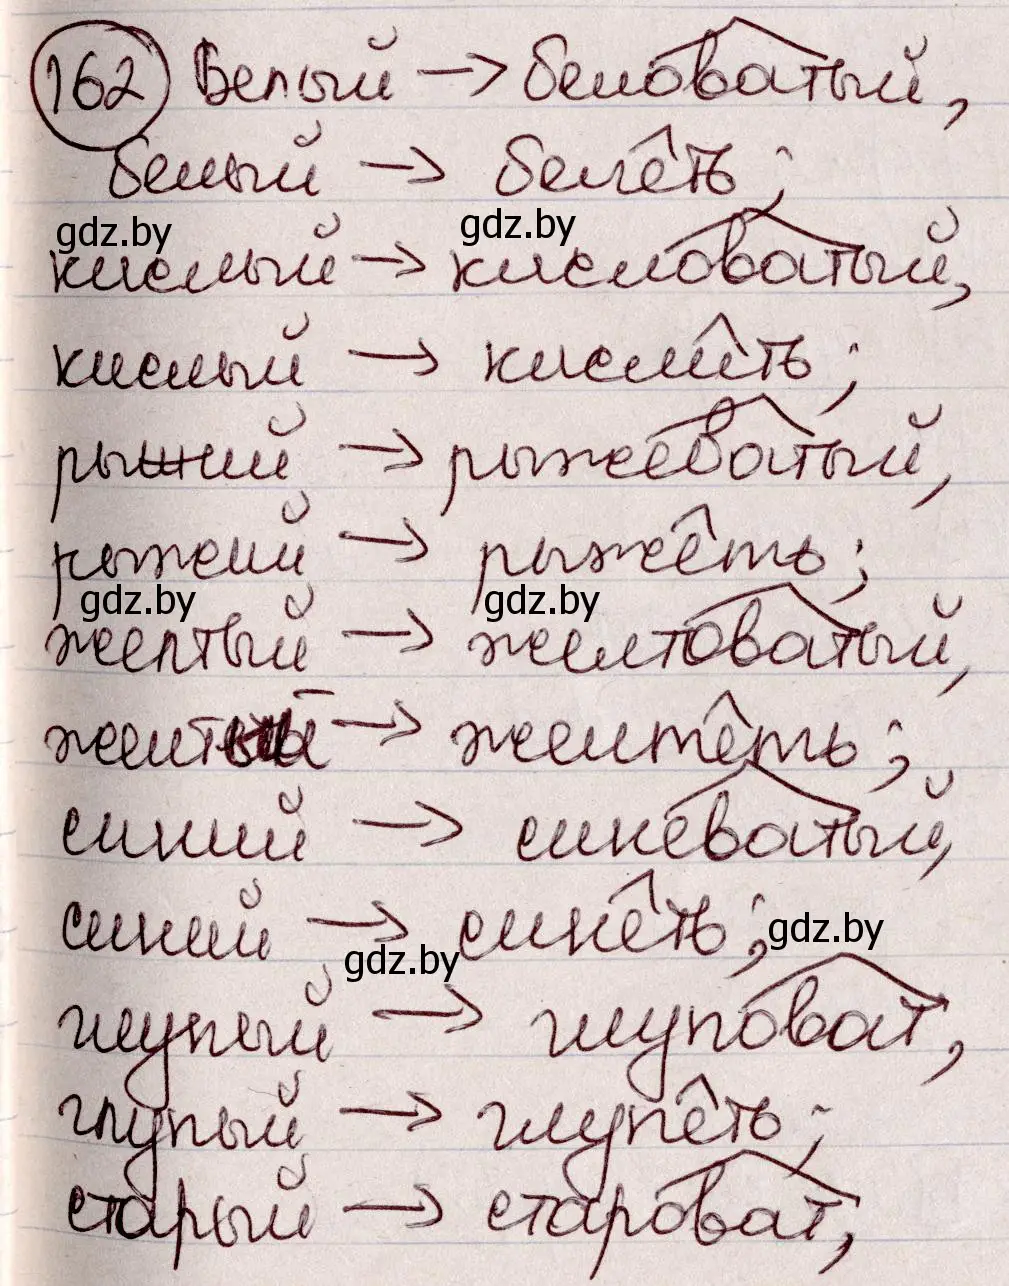 162 Белый → беловатый,
белый → белеть;
gdz.by gdz.by
кислый → кисловатый,
кислый → кислить;
рыжий → рыжеватый,
рыжеий → рыжеть;
gdz.by gdz.by
желтый → желтоватый,
желтый → желтеть;
синий → синеватый,
синий → синеть;
gdz.by gdz.by
глупый → глуповат,
глупый → глупеть;
старый → староват,